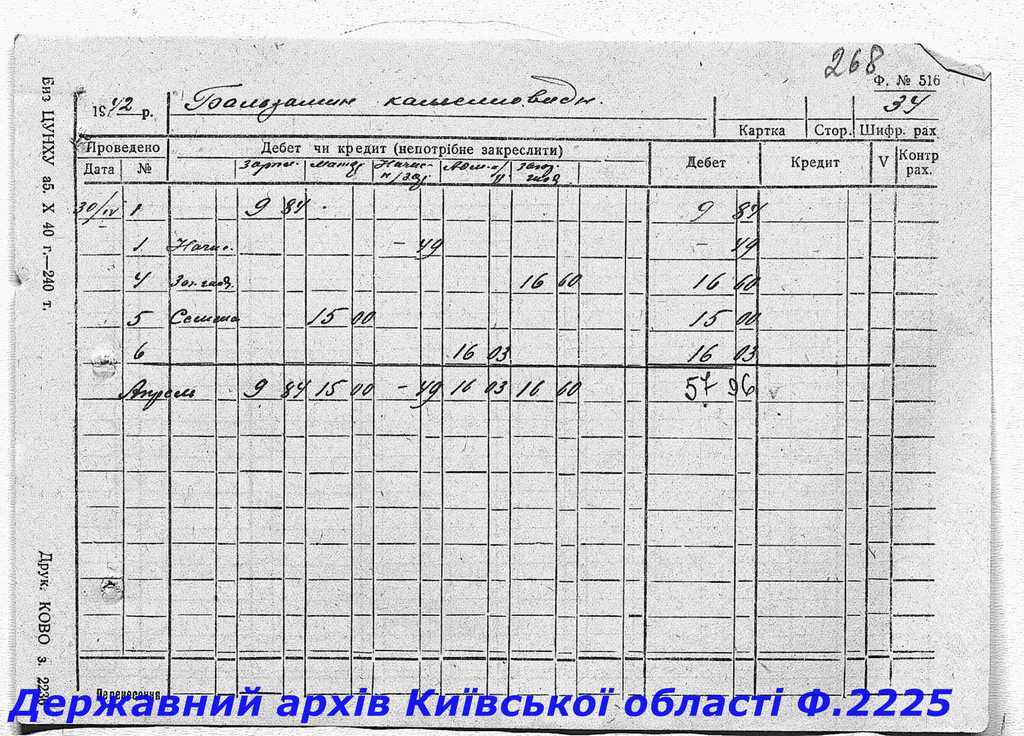 268
Ф. № 516
1942 р. Бальзамин 34
Картка Стор. Шифр. рах.
Проведено Дебет чи кредит (непотрібне закреслити) Дебет Кредит V Контр рах.
Дата №
30/IV 1 9 84 9 84
1 Начис. - 49 - 49
4 16 60 16 60
5 Семена 15 00 15 00
6 16 03 16 03
Апрель 9 84 15 00 - 49 16 03 16 60 57 96 v
Перенесення
Биз ЦУНХУ аб. X 40 г.—240 т.
Друк. КОВО з.
Державний архів Київської області Ф.2225